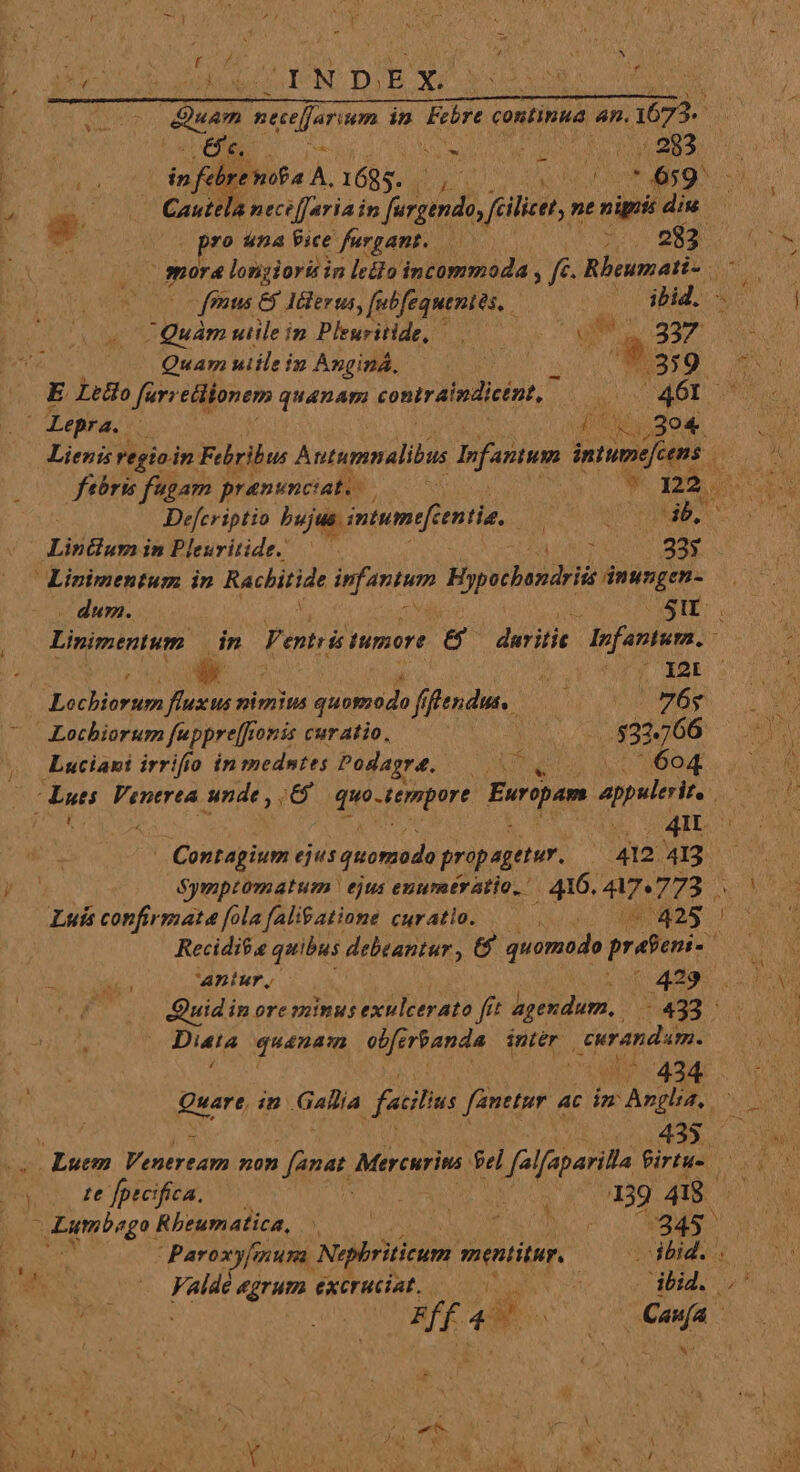 INDEX.
Quam necessarium in Febre continua an. 1673.
&c. 283
in febre nova A. 1685. 659
Cautela necessaria in surgendo, scilicet, ne nimis diu
pro una vice surgant. 283
mora longioris in lecto incommoda, sc. Rheumati-
smus & Icterus, subsequentes, ibid.
Quàm utile in Pleuritide, 337
Quam utile in Anginâ, 359
E Lecto surrectionem quænam contraindicent, 461
Lepra. 304
Lienis regio in Febribus Autumnalibus Infantum intumescens
febris fugam prænunciat. 122
Descriptio hujus intumescentiæ. ib.
Linctum in Pleuritide. 335
Linimentum in Rachitide infantum Hypochondriis inungen-
dum. 511
Linimentum in Ventris tumore & duritie Infantum.
121
Lochiorum fluxus nimius quomodo sistendus. 765
Lochiorum suppressionis curatio. 533.766
Luciani irrisio in medntes Podagræ. 604
Lues Venerea unde, & quo tempore Europam appulerit.
411
Contagium ejus quomodo propagetur. 412 413
Symptomatum ejus enumeratio. 416. 417.773
Luis confirmatæ sola salivatione curatio. 425
Recidivæ quibus debeantur, & quomodo præveni-
antur, 429
Quid in ore minus exulcerato sit agendum. 433
Diæta quænam observanda inter curandum.
434
Quare in Gallia facilius sanetur ac in Anglia,
435
Luem Veneream non sanat Mercurius vel salsaparilla virtu-
te specifica. 139 418
Lumbago Rheumatica, 345
Paroxysmum Nephriticum mentitur. ibid.
Valdè ægrum excruciat. ibid.
Fff 4 Causa